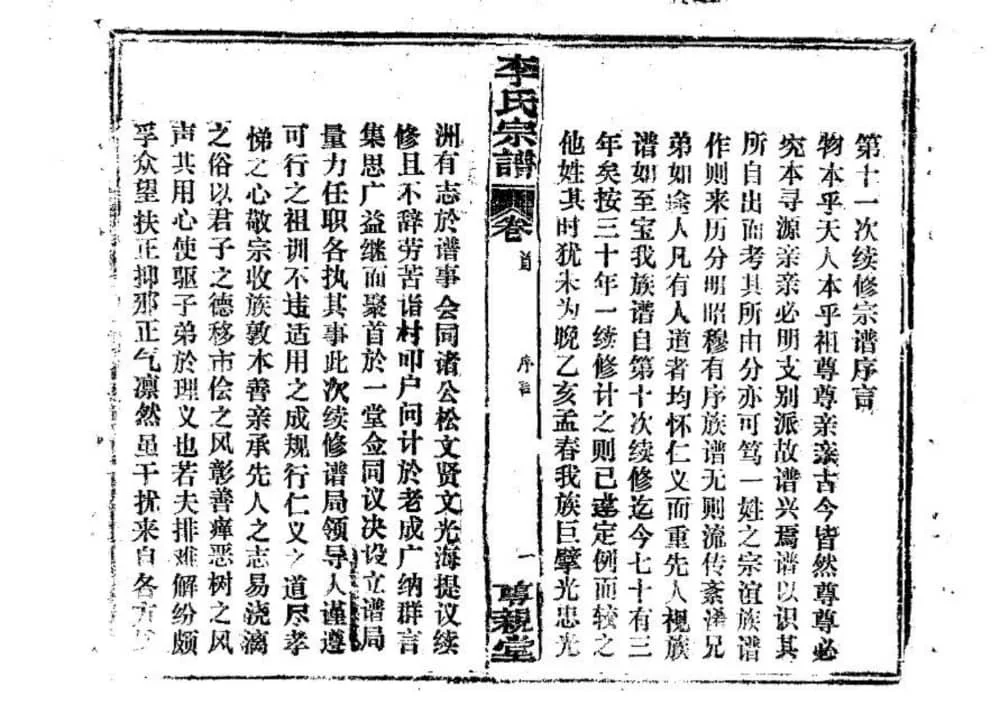 第十一次续修宗谱序言
物本乎天人本乎祖尊尊亲亲古今皆然尊尊必
究本寻源亲亲必明支别派故谱兴焉谱以识其
所自出而考其所由分亦可笃一姓之宗谊族谱
作则来历分明昭穆有序族谱无则流传紊淆兄
弟如途人凡有人道者均怀仁义而重先人视族
谱如至宝我族谱自第十次续修迄今七十有三
年矣按三十年一续修计之则已违定例而较之
他姓其时犹未为晚乙亥孟春我族巨擘光忠光
李氏宗谱
卷首
序
一
尊亲堂
洲有志於谱事会同诸公松文贤文光海提议续
修且不辞劳苦诣村叩户问计於老成广纳群言
集思广益继而聚首於一堂佥同议决设立谱局
量力任职各执其事此次续修谱局领导人谨遵
可行之祖训不违适用之成规行仁义之道尽孝
悌之心敬宗收族敦本善亲承先人之志易浇漓
之俗以君子之德移市侩之风彰善瘅恶树之风
声共用心使驱子弟於理义也若夫排难解纷颇
孚众望扶正抑邪正气凛然虽干扰来自各方